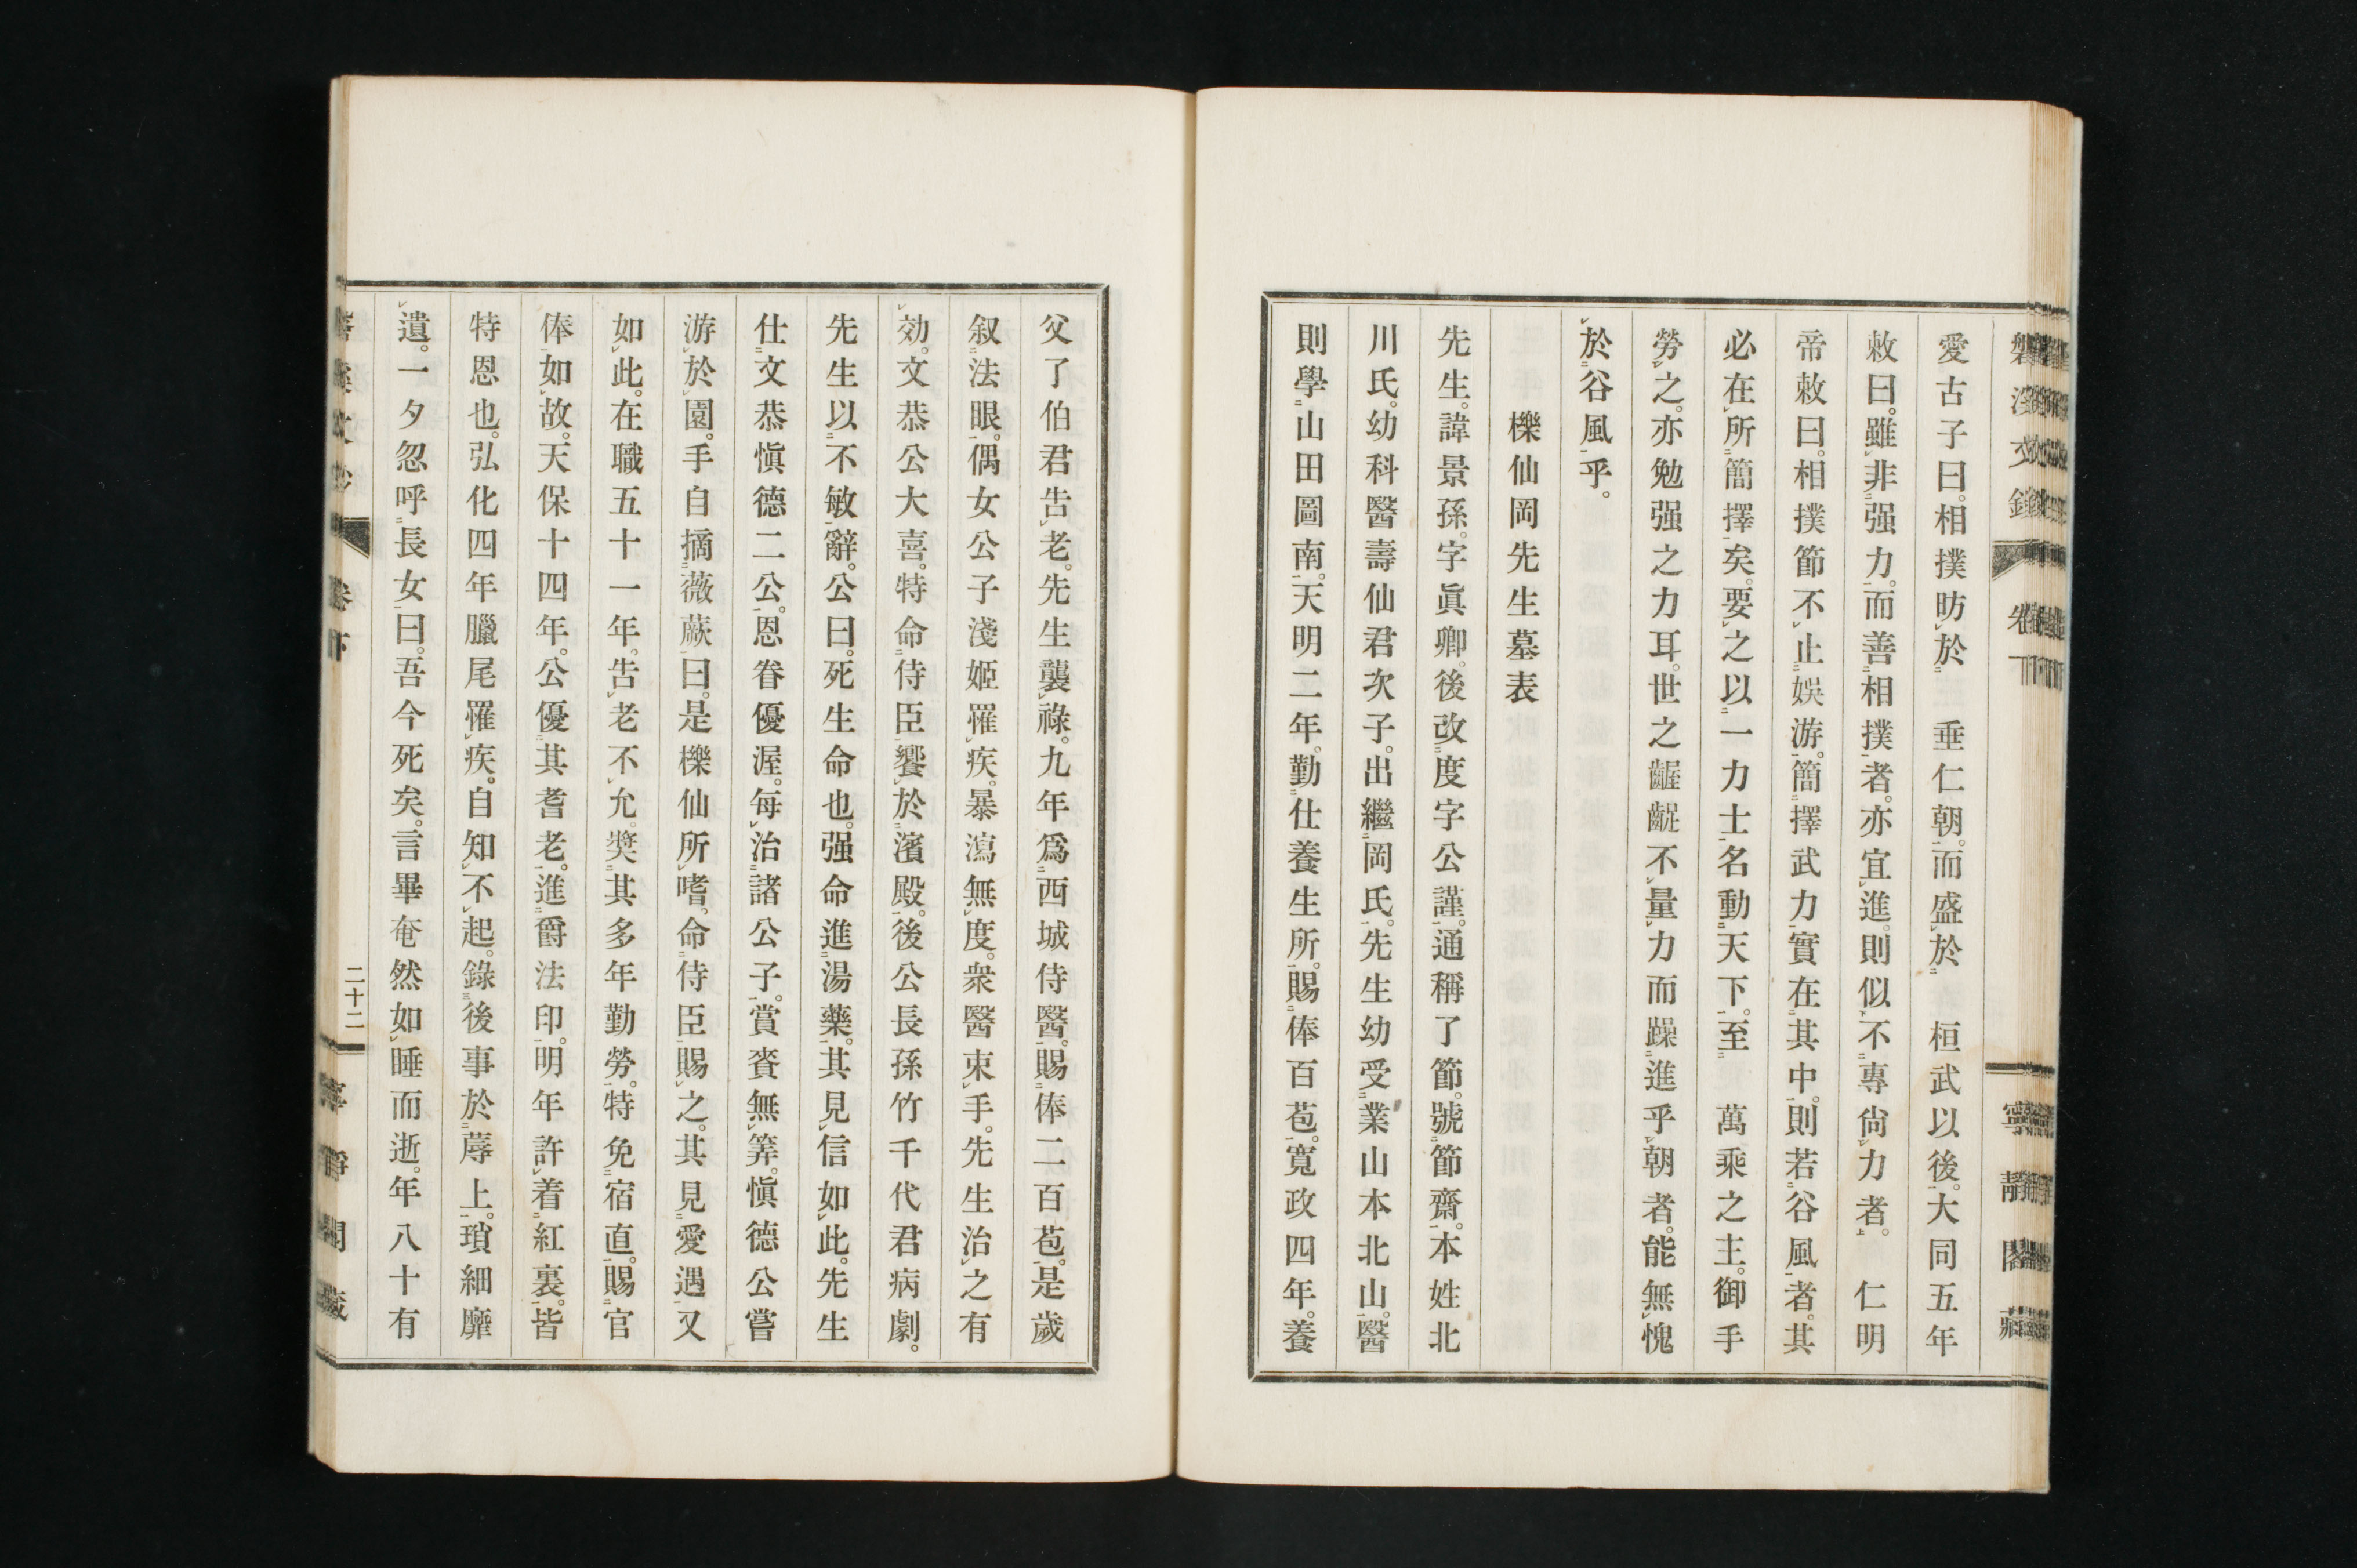 愛古子曰。相撲昉於 垂仁朝。而盛於 桓武以後。大同五年
敕曰。雖非强力。而善相撲者。亦宜進。則似不專尙力者。 仁明
帝敕曰。相撲節不止娛游。簡擇武力實在其中。則若谷風者。其
必在所簡擇矣。要之以一力士名動天下。至 萬乘之主。御手
勞之。亦勉强之力耳。世之齷齪不量力而躁進乎朝者。能無愧
於谷風乎。
櫟仙岡先生墓表
先生。諱景孫。字眞卿。後改度字公謹。通稱了節。號節齋。本姓北
川氏。幼科醫壽仙君次子。出繼岡氏。先生幼受業山本北山。醫
則學山田圖南。天明二年。勤仕養生所。賜俸百苞。寬政四年。養
父了伯君告老。先生襲祿。九年爲西城侍醫。賜俸二百苞。是歲
叙法眼。偶女公子淺姬罹疾。暴瀉無度。衆醫束手。先生治之有
効。文恭公大喜。特命侍臣饗於濱殿。後公長孫竹千代君病劇。
先生以不敏辭。公曰。死生命也。强命進湯藥。其見信如此。先生
仕文恭愼德二公。恩眷優渥。每治諸公子。賞賚無筭。愼德公嘗
游於園。手自摘薇蕨曰。是櫟仙所嗜。命侍臣賜之。其見愛遇又
如此。在職五十一年。告老不允。奬其多年勤勞。特免宿直。賜官
俸如故。天保十四年。公優其耆老。進爵法印。明年許着紅裏。皆
特恩也。弘化四年臘尾罹疾。自知不起。錄後事於蓐上。瑣細靡
遺。一夕忽呼長女曰。吾今死矣。言畢奄然如睡而逝。年八十有
卷下
二十二
寧靜閣藏